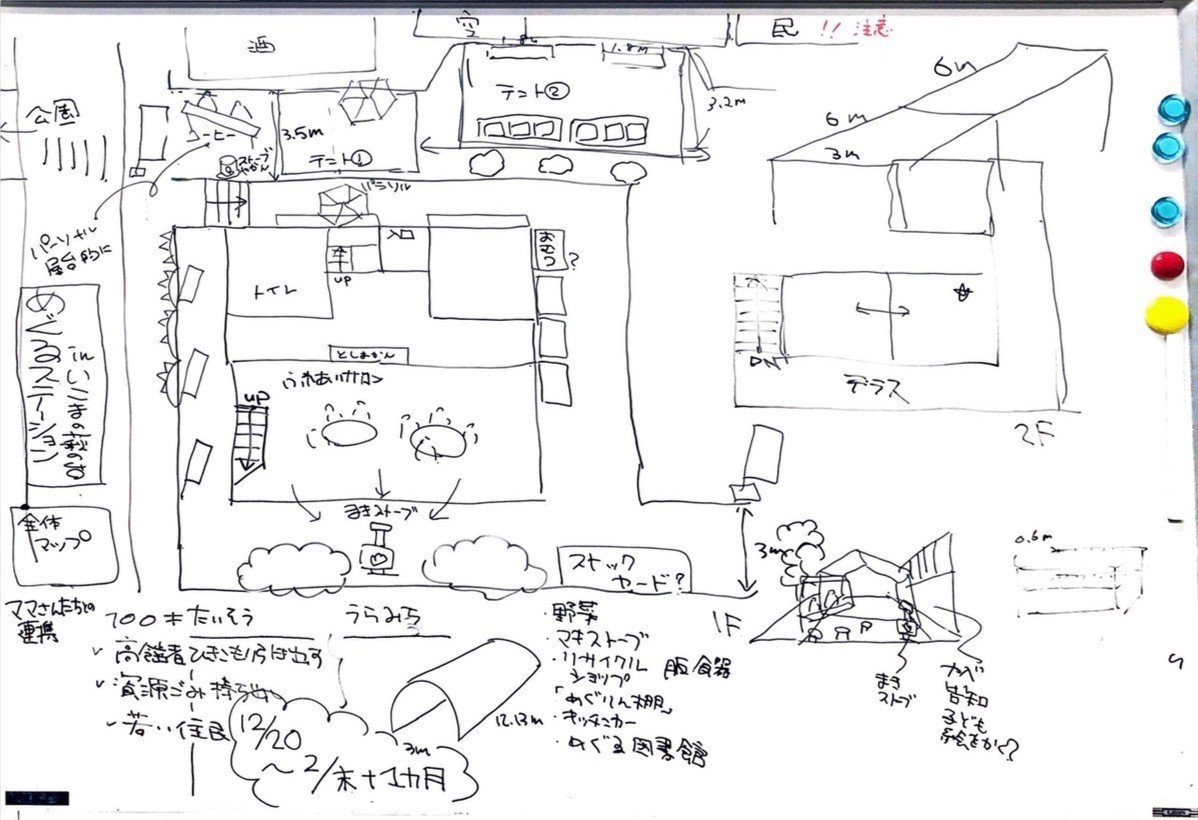 酒
空
民 !! 注意
公園
コーヒー
3.5m
テント①
テント②
1.8m
1.8m
3.2m
ストーブ
やかん
パラソル
パーソナル
屋台的に
入口
UP
トイレ
おむつ
?
としょかん
ふれあいサロン
UP
まきストーブ
ストック
ヤード?
3m
1F
6m
6m
3m
DN
テラス
2F
0.6m
めぐるステーション
inいこまの萩の台
全体
マップ
ママさんたちとの
連携
100キたいそう
✓ 高齢者ひきこもり引き出す
✓ 資源ごみ持ち込み
✓ 若い住民
うらみち
12/20
～2/末+1カ月
3m
12.13m
・野菜
・マキストーブ
・リサイクル
ショップ
服・食器
「めぐりん棚」
・キッチンカー
・めぐる図書館
まき
ストーブ
カベ
告知
子ども
絵をかく?